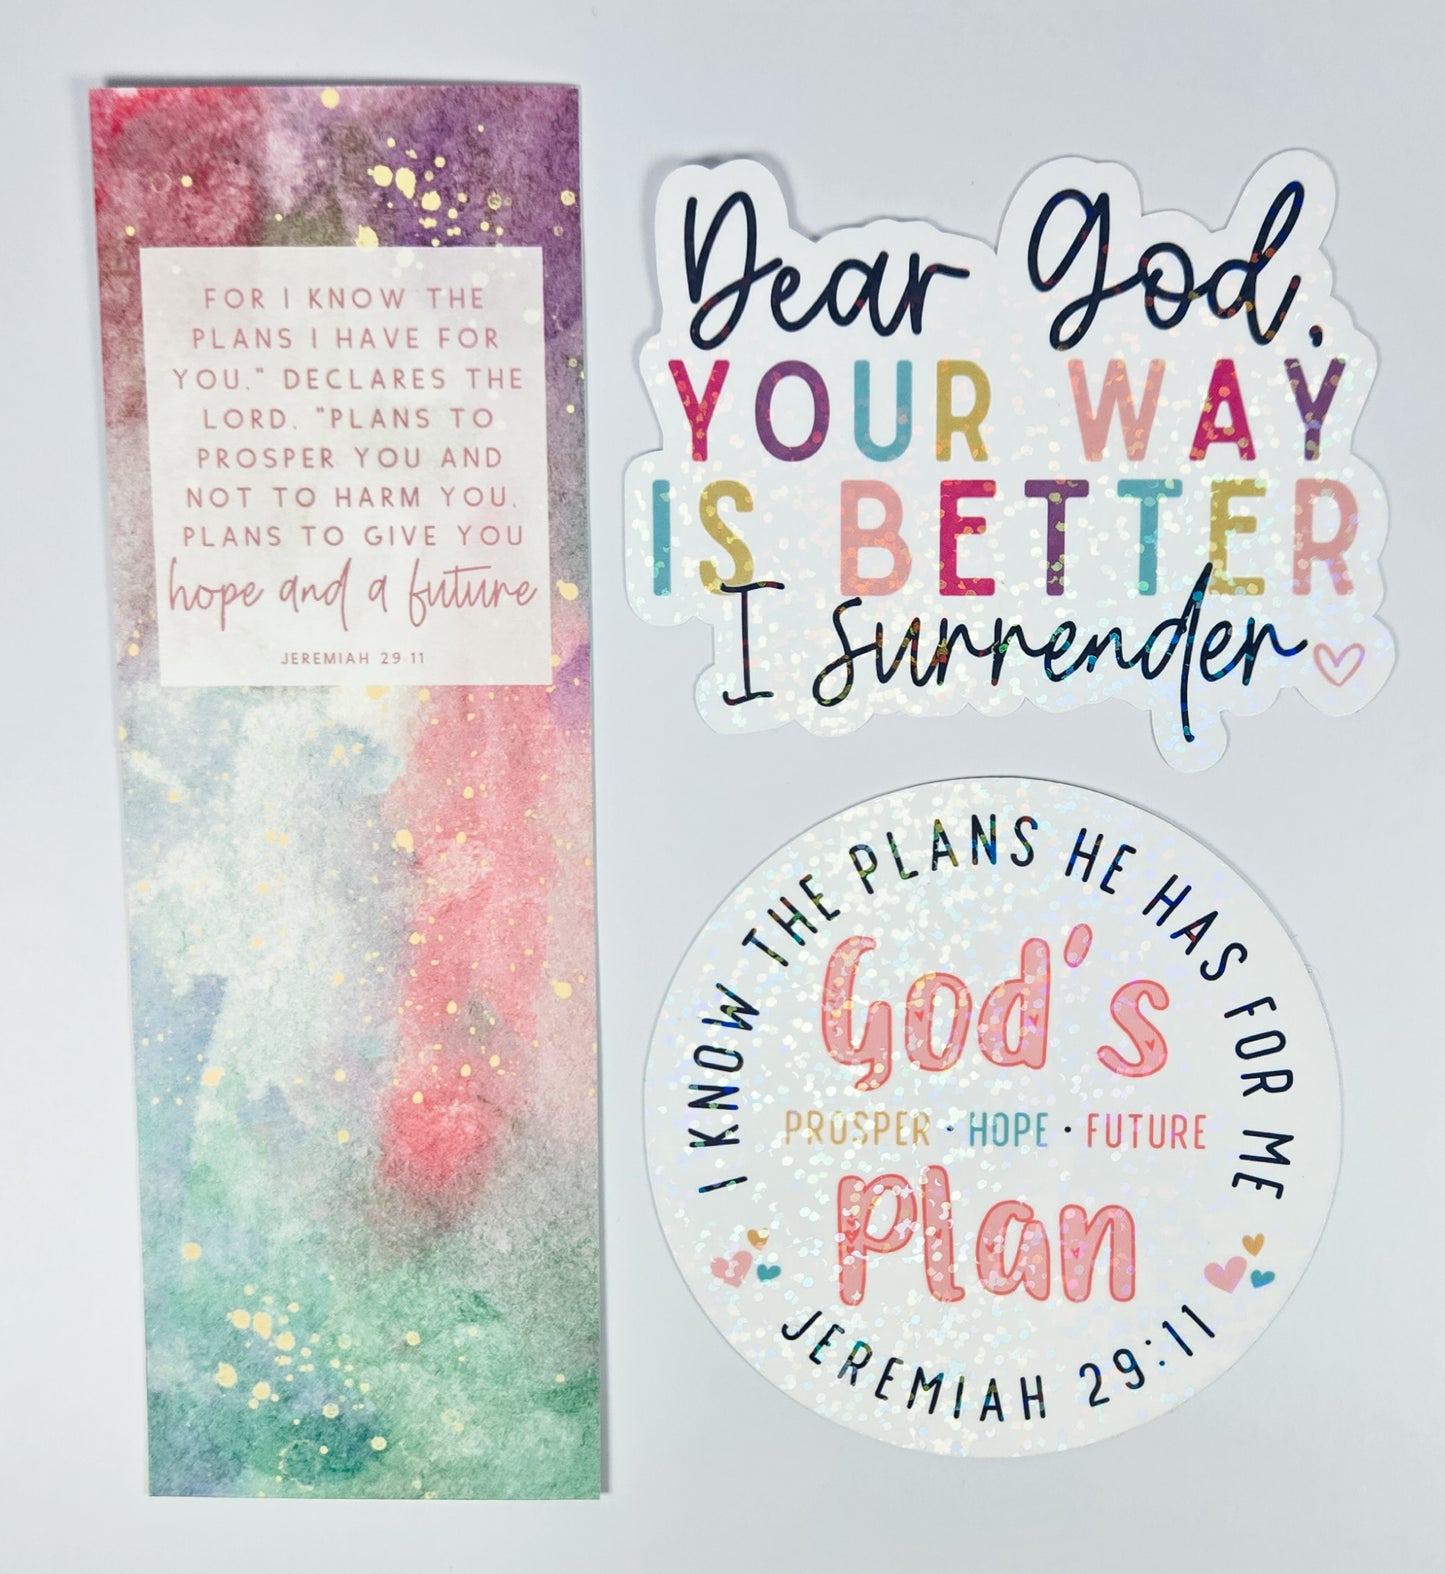 FOR I KNOW THE
PLANS I HAVE FOR
YOU," DECLARES THE
LORD, "PLANS TO
PROSPER YOU AND
NOT TO HARM YOU,
PLANS TO GIVE YOU
hope and a future
JEREMIAH 29:11
Dear God,
YOUR WAY
IS BETTER
I surrender
I KNOW THE PLANS HE HAS FOR ME
God's
PROSPER · HOPE · FUTURE
Plan
JEREMIAH 29:11